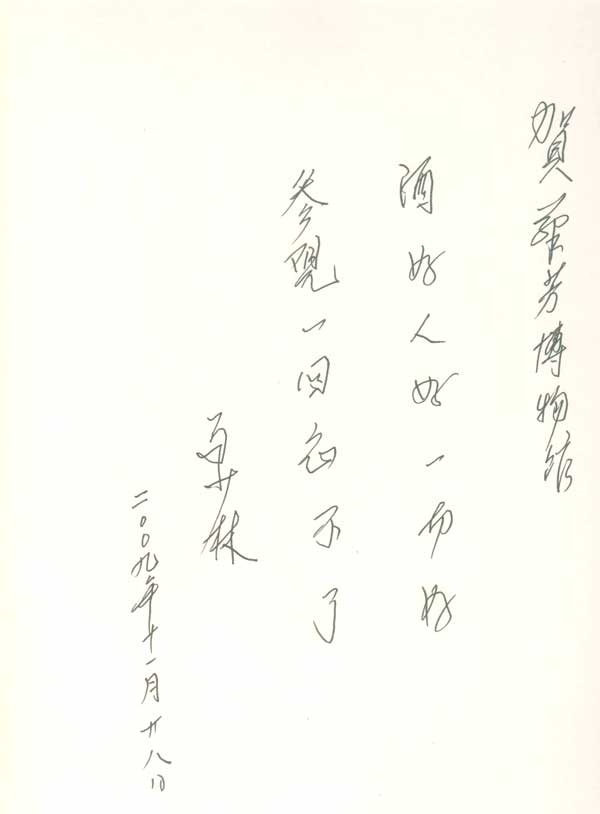 賀芳博物馆
酒好人好一切好
参覌一回忘不了
林
二〇〇九年十一月廿八日